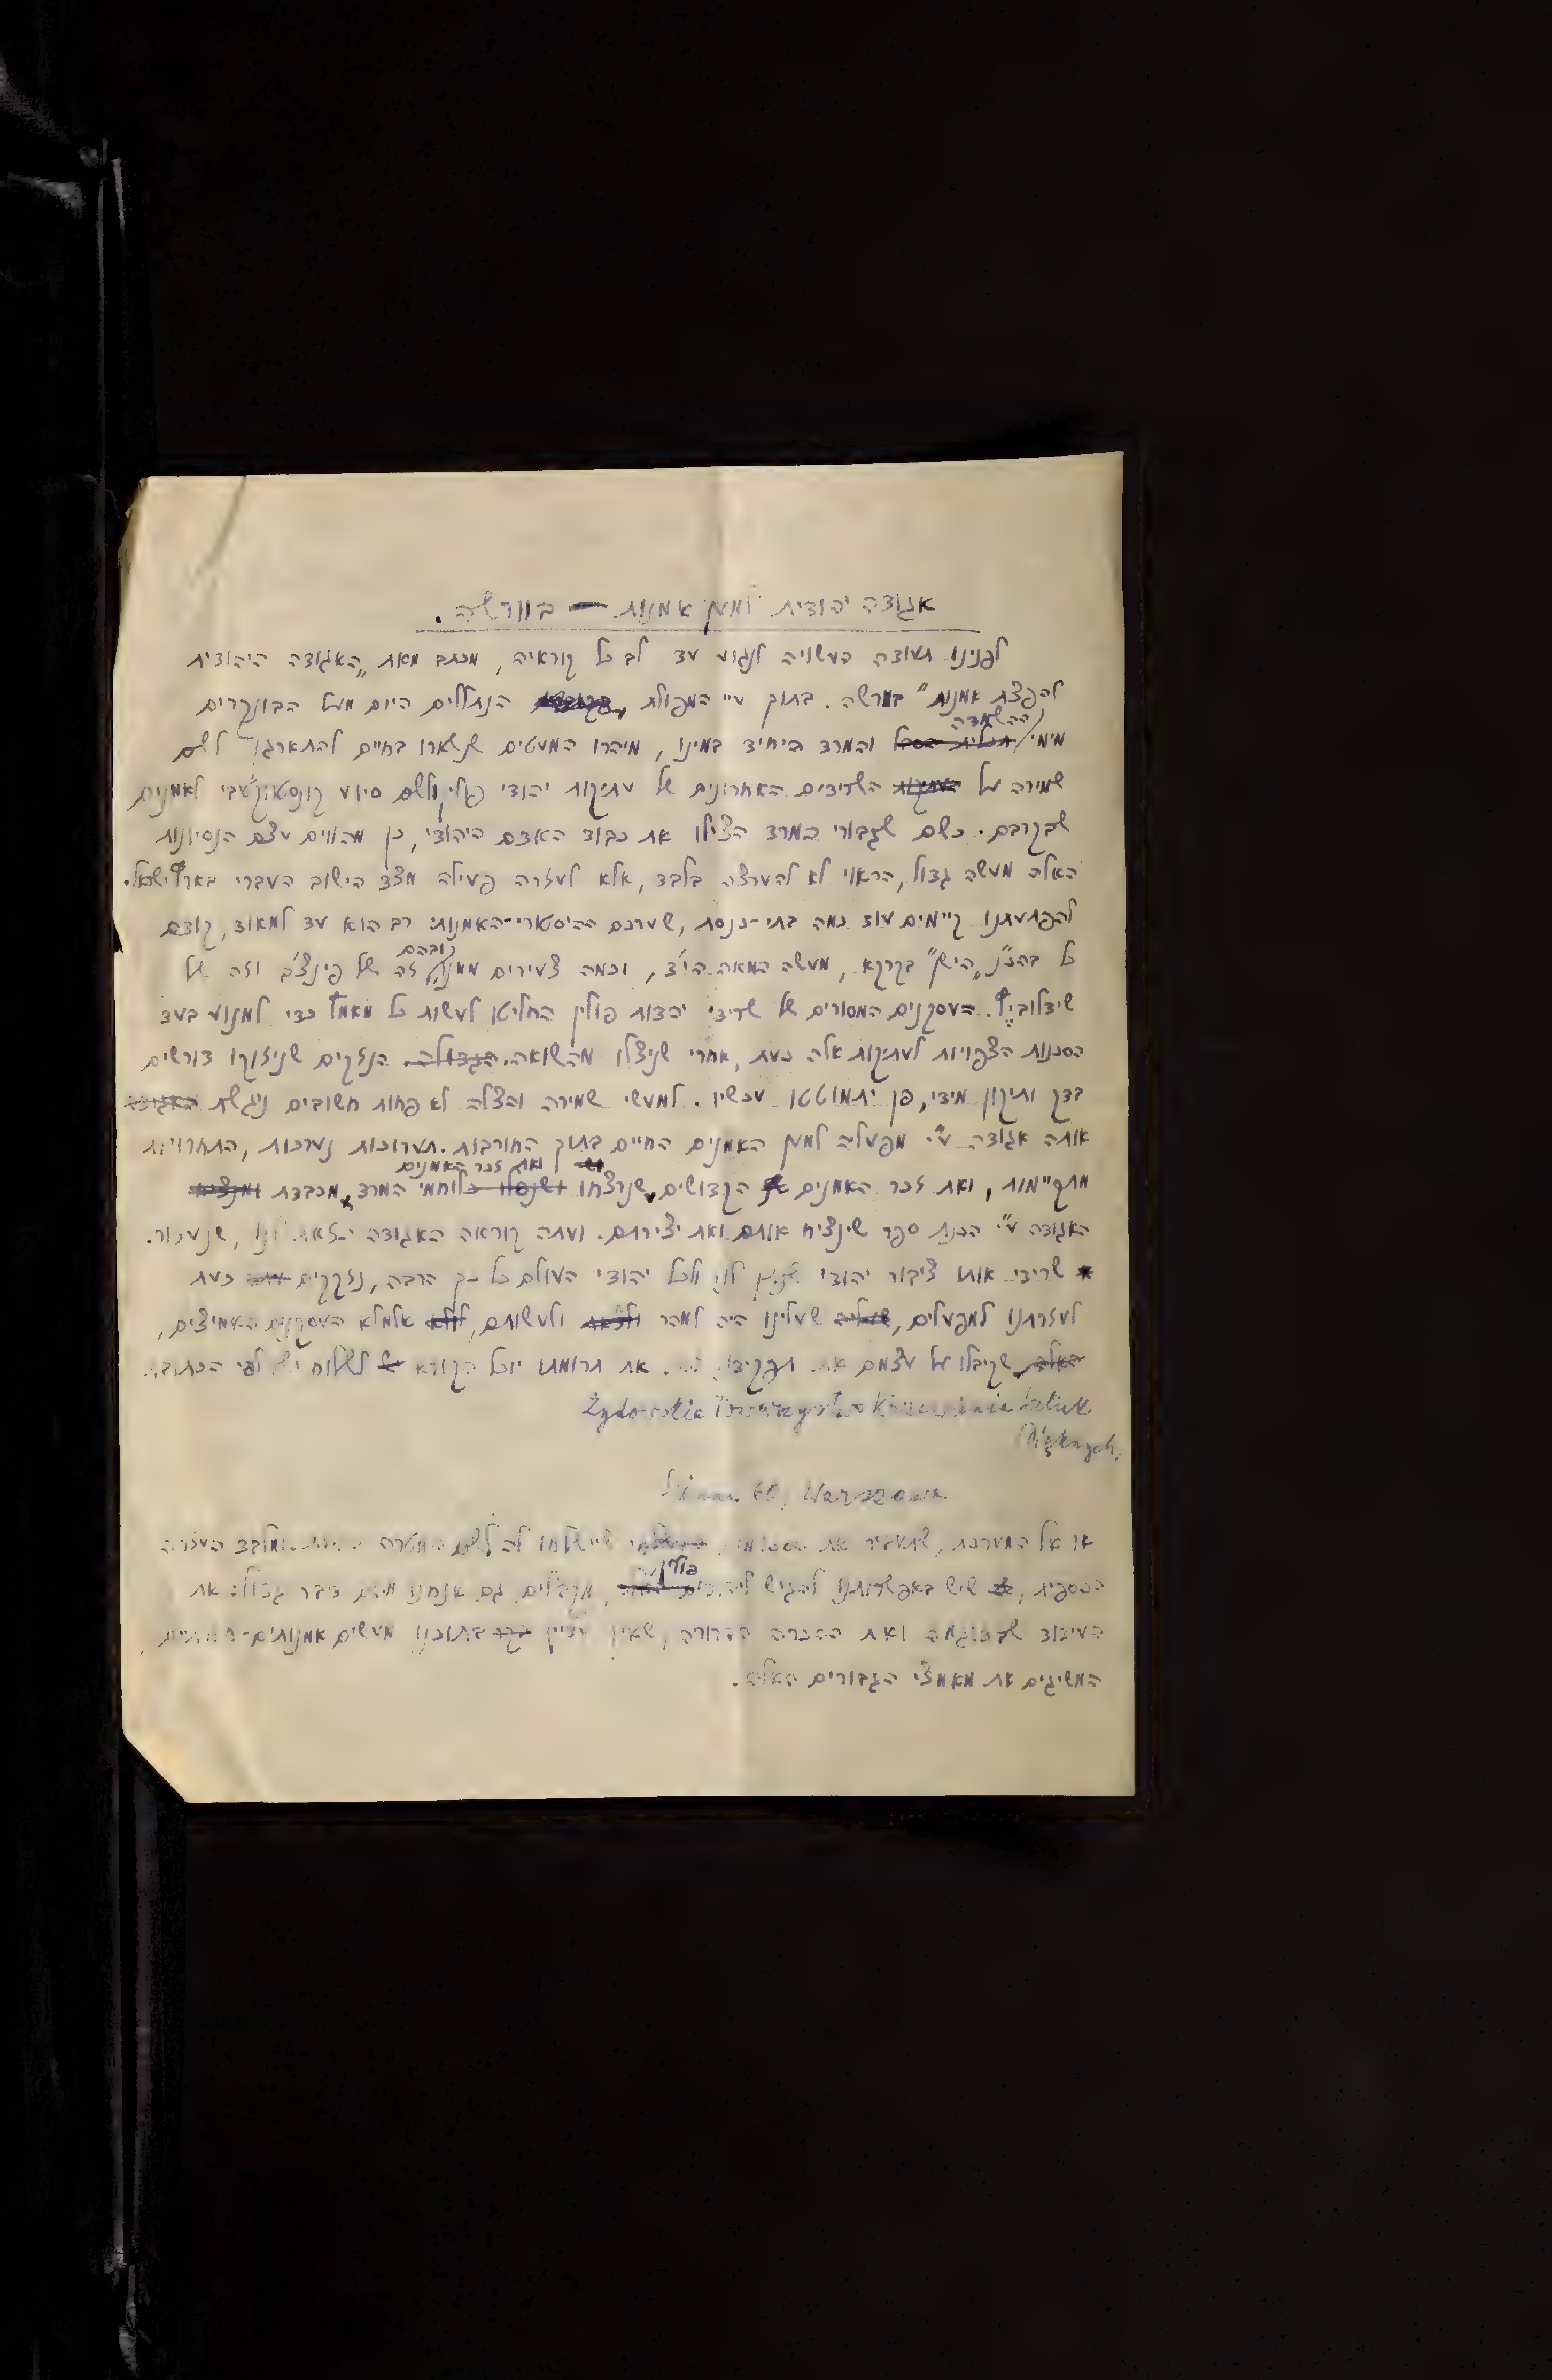 אגודה יהודית למען אמנות — בוורשה.
לפנינו תעודה העשויה לנגוע עד לב כל קוראיה, מכתב מאת „האגודה היהודית
להפצת אמנות" בורשה. בתוך עיי המפולת הנתללים היום מעל הבונקרים
ההשמדה
מימי תכלית הסבל והמרד היחיד במינו, מיהרו המעטים שנשארו בחיים להתארגן לשם
שמירה על העתיקות השרידים האחרונים של עתיקות יהודי פולין ולשם סיוע קונסטוקטיבי לאמנים
שבקרבם. כשם שגבורי המרד הצילו את כבוד האדם היהודי, כן מהווים עצם הנסיונות
האלה מעשה גדול, הראוי לא להערצה בלבד, אלא לעזרה פעילה מצד הישוב העברי בארץ ישראל.
להפתעתנו קיימים עוד כמה בתי-כנסת, שערכם ההיסטורי-האמנותי רב הוא עד למאוד, קודם
כל בהכ"נ „הישן" בקרקא, מעשה המאה הי"ד, וכמה צעירים ממנו, זה של פינצ'ב וזה של
שידלוביץ. העסקנים המסורים של שרידי יהדות פולין החליטו לעשות כל מאמץ כדי למנוע בעד
הסכנות הצפויות לעתיקות אלה כעת, אחרי שניצלו מהשואה. הגדולה הנזקים שניזוקו דורשים
בדק ותיקון מידי, פן יתמוטטו עכשיו. למעשי שמירה והצלה לא פחות חשובים ניגשת האגודה
אותה אגודה ע"י מפעליה למען האמנים החיים בתוך החורבות. תערוכות נערכות, התחרויות
ואת זכר האמנים
מתקיימות, ואת זכר האמנים הקדושים, שנרצחו ושנפלו כלוחמי המרד, מכבדת ומנציח
האגודה ע"י הכנת ספר שינציח אותם ואת יצירתם. ועתה קוראה האגודה הזאת לנו, שנעזור.
שרידי אותו ציבור יהודי שנתן לנו ולכל יהודי העולם כל כך הרבה, נזקקים כעת
לעזרתנו למפעלים, שעלינו היה למהר ולעשותם, לולא אלמלא העסקנים האמיצים,
האלה, שקיבלו על עצמם את תפקידנו זה. את תרומתו יוכל הקורא לשלוח לפי הכתובת
Żydowskie Towarzystwo Krzewienia Sztuk
Pięknych,
60, Warszawa
או אל המערכת, שתעביר את הסכומים שיישלחו לה לשם המטרה ומלבד העזרה
פולין
הכספית, שיש באפשרותנו להגיש ליהודי מקבלים גם אנחנו מהם דבר גדול: את
העידוד שבדוגמה ואת ההכרה הברורה, שאין עדיין בתוכנו מעשים אמנותיים-
המשיגים את מאמצי הגבורים האלה.